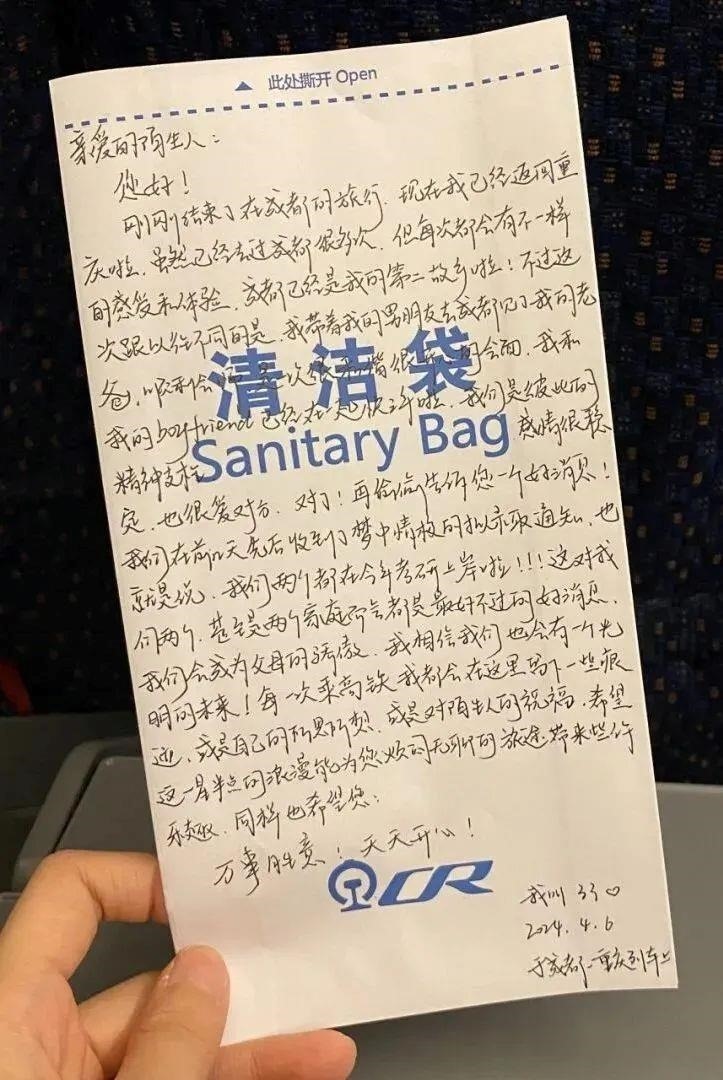 此处撕开 Open
亲爱的陌生人：
您好！
刚刚结束了在成都的旅行，现在我已经返回重
庆啦，虽然已经去过成都很多次，但每次都会有不一样
的感受和体验，成都已经是我的第二故乡啦！不过这
次跟以往不同的是，我带着我的男朋友去成都见了我的老
爸，顺利会面，是一次很和谐很开心的会面，我和
清洁袋
我的boyfriend已经在一起快三年啦，我们是彼此的
Sanitary Bag
精神支柱 感情很稳
定，也很爱对方，对了！再给您告诉您一个好消息！
我们在前几天先后收到了梦中情校的拟录取通知，也
就是说，我们两个都在今年考研上岸啦!!!这对我
们两个，甚至是两个家庭而言都是最好不过的好消息，
我们会成为父母的骄傲，我相信我们也会有一个光
明的未来！每一次乘高铁我都会在这里留下一些痕
迹，或是自己的所思所想，或是对陌生人的祝福，希望
这一星半点的浪漫能为您烦闷无聊的旅途带来些许
乐趣，同样也希望您：
万事胜意！天天开心！
CR
我叫 33♡
2024.4.6
于成都-重庆列车上